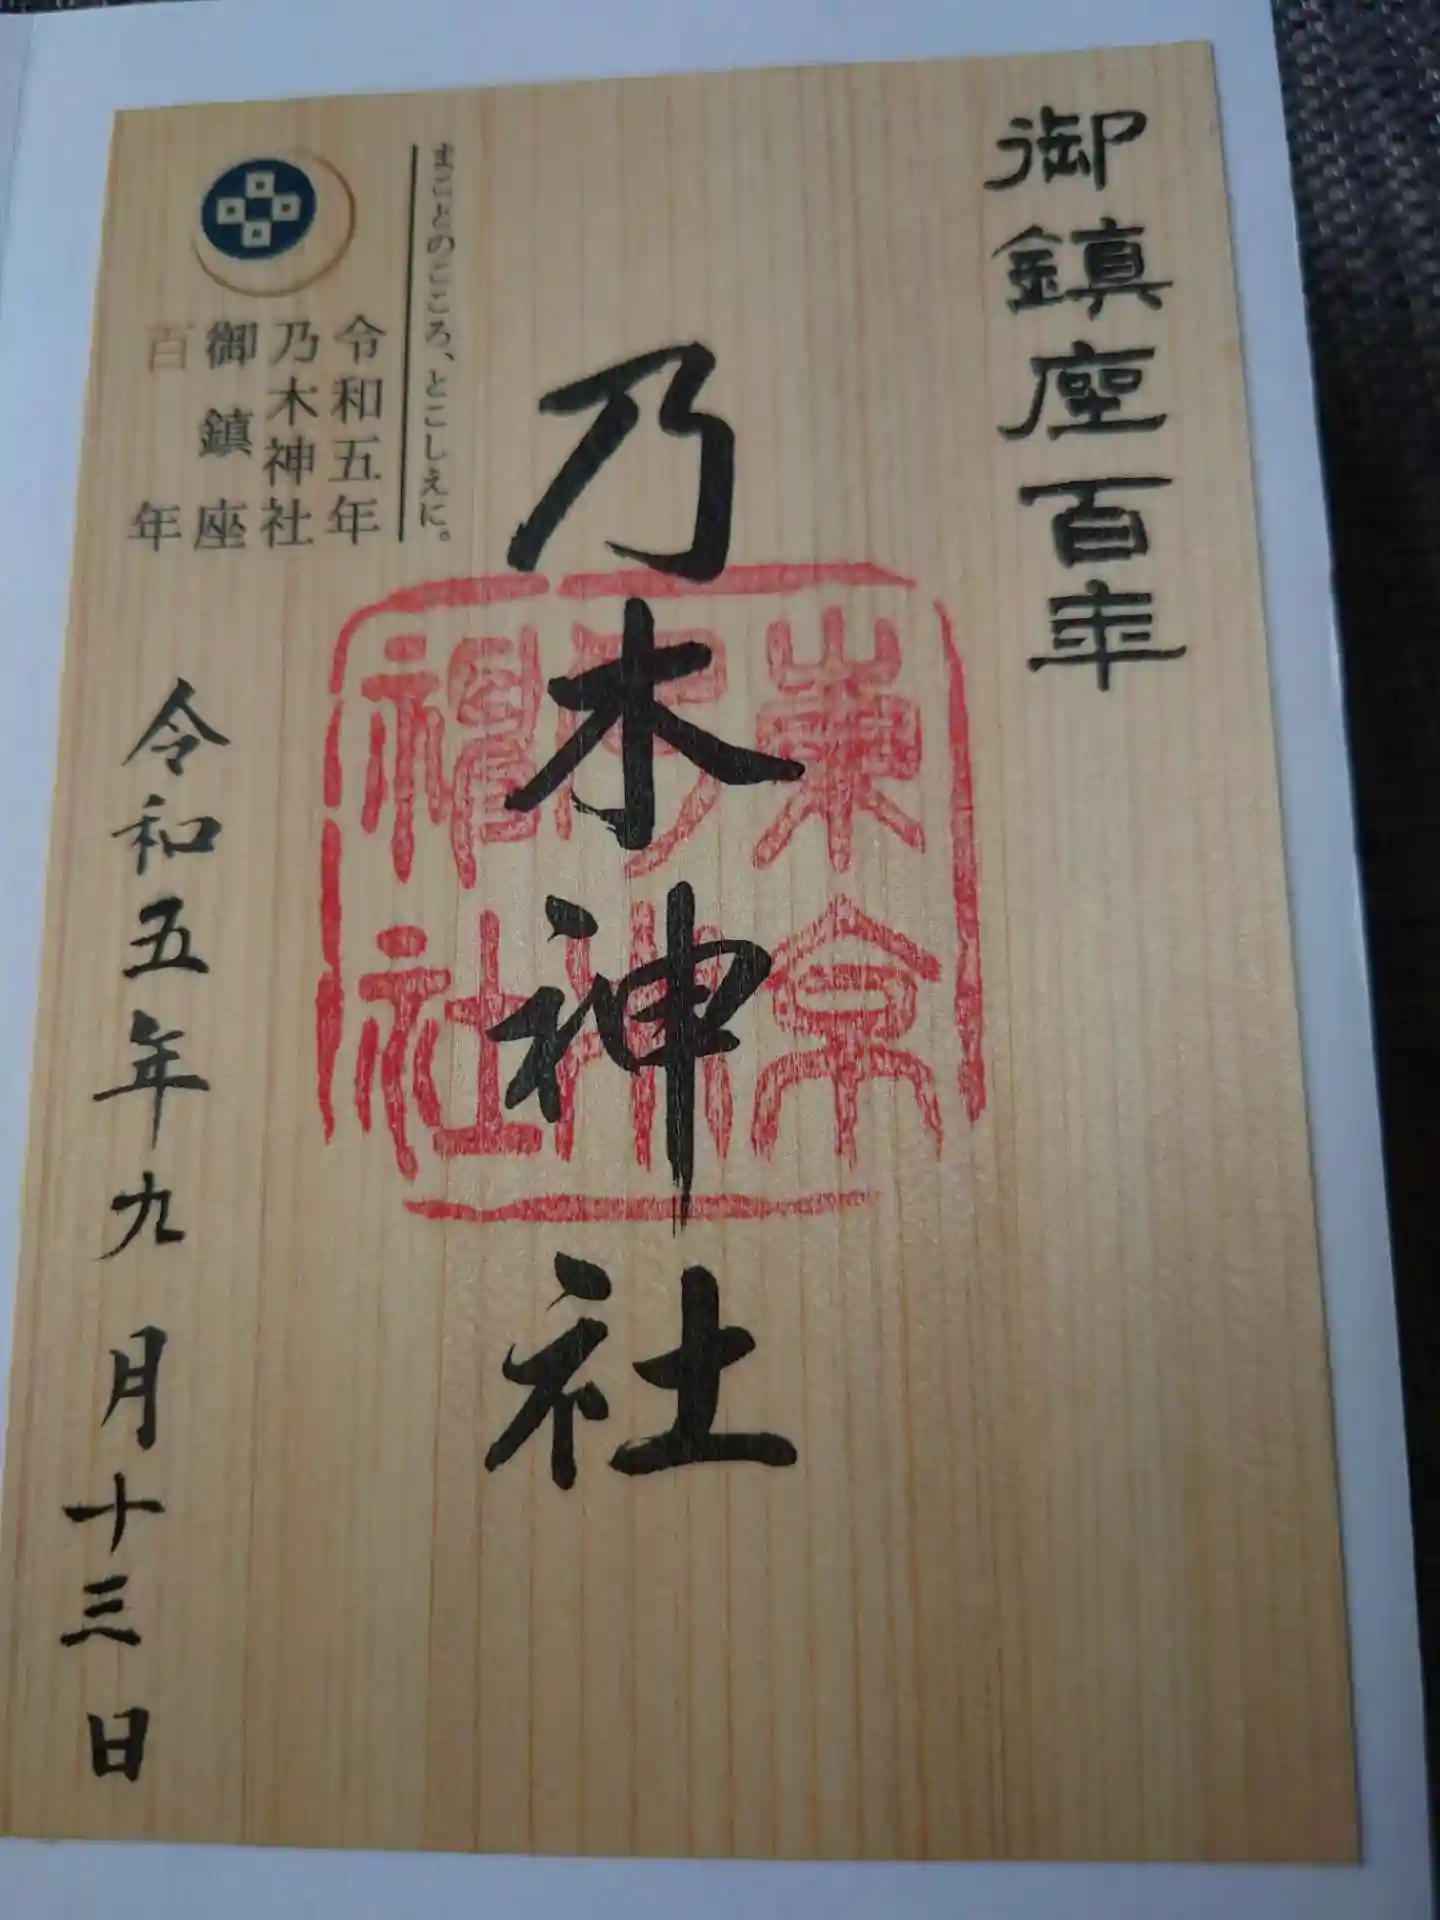 御鎮座百年
乃木神社
東京
乃木
神社
まことのこころ、とこしえに。
令和五年
乃木神社
御鎮座
百年
令和五年九月十三日